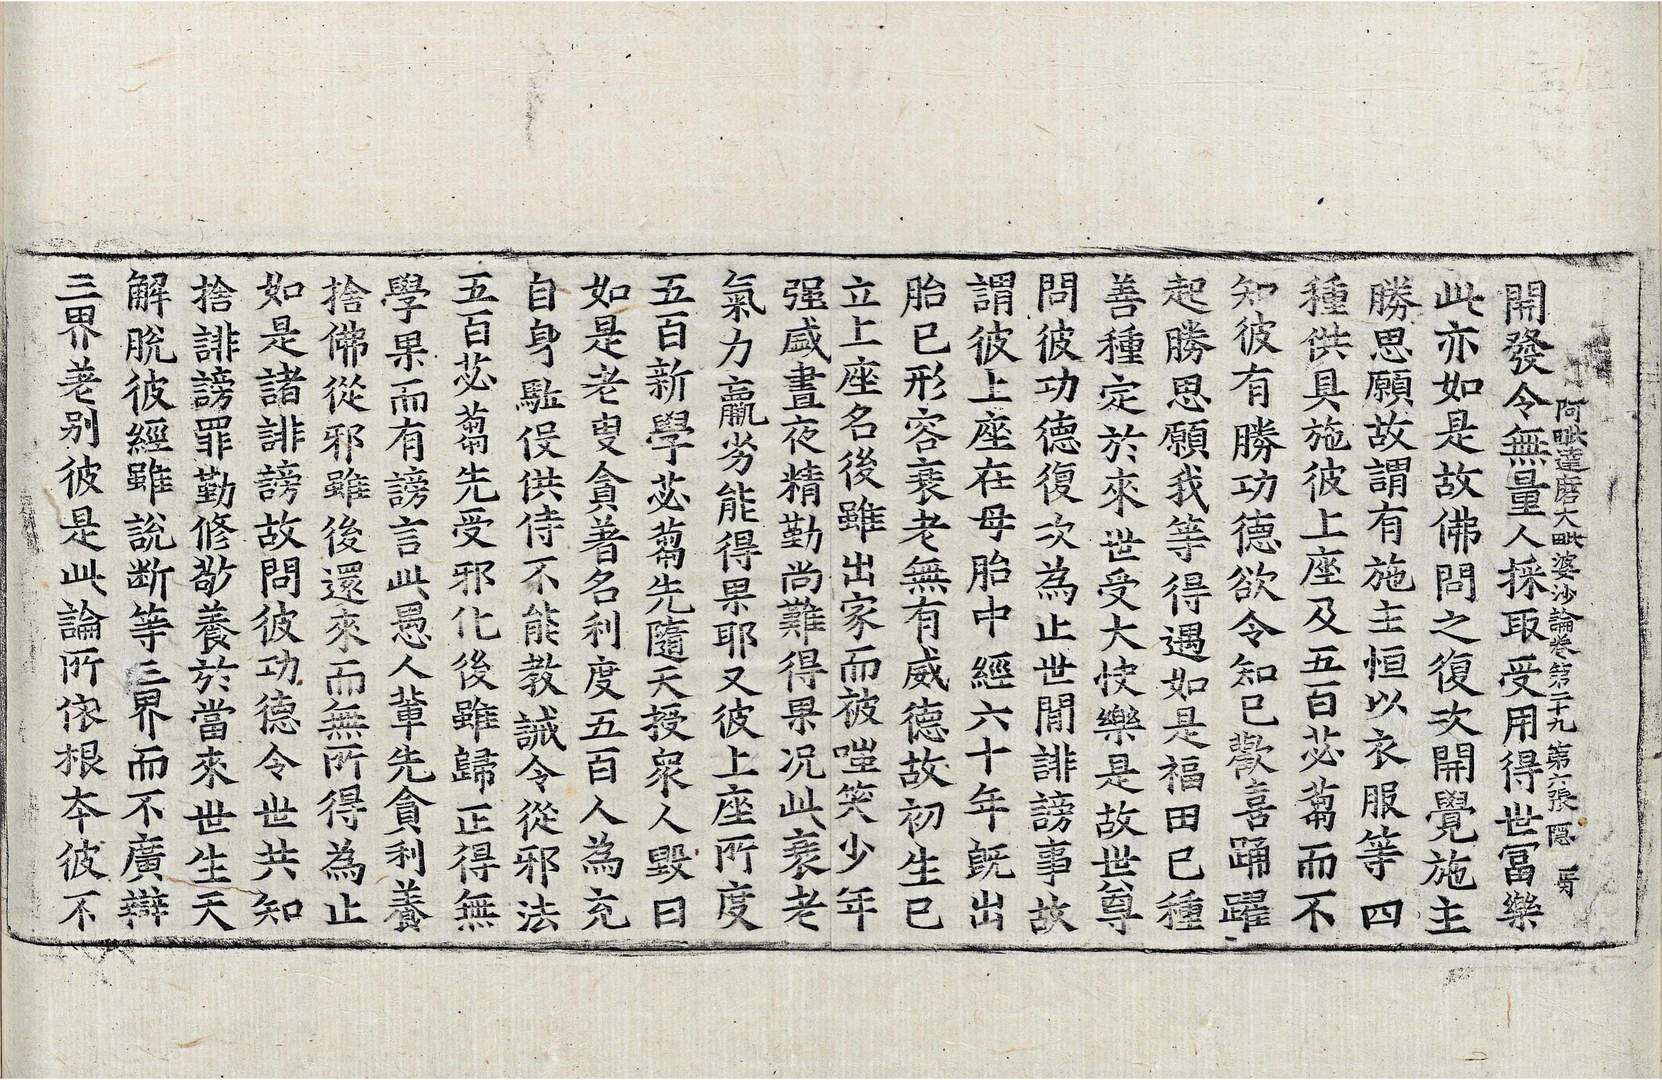 開發令無量人採取受用得世冨樂
阿毗達磨大毗婆沙論卷第二十九 第六張 隱
此亦如是故佛問之復次開覺施主
勝思願故謂有施主恒以衣服等四
種供具施彼上座及五百苾蒭而不
知彼有勝功德欲令知已歡喜踊躍
起勝思願我等得遇如是福田已種
善種定於來世受大快樂是故世尊
問彼功德復次為止世間誹謗事故
謂彼上座在母胎中經六十年旣出
胎已形容衰老無有威德故初生已
立上座名後雖出家而被嗤笑少年
强盛晝夜精勤尚難得果况此衰老
氣力羸劣能得果耶又彼上座所度
五百新學苾蒭先隨天授衆人毀曰
如是老叟貪著名利度五百人為充
自身駈役供侍不能教誡令從邪法
五百苾蒭先受邪化後雖歸正得無
學果而有謗言此愚人輩先貪利養
捨佛從邪雖後還來而無所得為止
如是諸誹謗故問彼功德令世共知
捨誹謗罪勤修敬養於當來世生天
解脫彼經雖說断等三界而不廣辯
三界差别彼是此論所依根本彼不